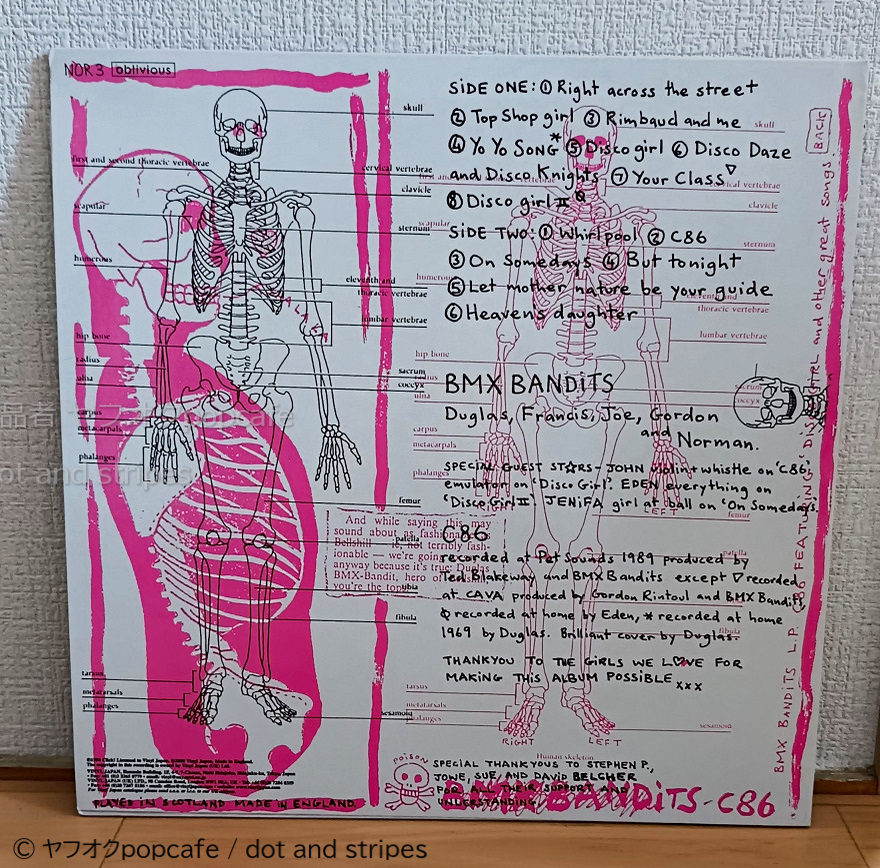 NOR 3 oblivious
SIDE ONE: ① Right across the street
② Top Shop girl ③ Rimbaud and me
④ Yo Yo SONG* ⑤ Disco girl ⑥ Disco Daze
and Disco Knights ⑦ Your Class▽
⑧ Disco girl II
SIDE TWO: ① Whirlpool ② C86
③ On Somedays ④ But tonight
⑤ Let mother nature be your guide
⑥ Heavens daughter
BMX BANDITS
Duglas, Francis, Joe, Gordon
and Norman.
SPECIAL GUEST ST☆RS - JOHN violin + whistle on 'C86',
emulator on 'Disco Girl'. EDEN everything on
'Disco Girl II'. JENIFA girl at ball on 'On Somedays'.
C86
recorded at Pet Sounds 1989 produced by
Ted Blakeway and BMX Bandits except ▽ recorded
at CAVA produced by Gordon Rintoul and BMX Bandits,
recorded at home by Eden, * recorded at home
1969 by Duglas. Brilliant cover by Duglas.
THANKYOU TO THE GIRLS WE L♡VE FOR
MAKING THIS ALBUM POSSIBLE xxx
POISON
SPECIAL THANKYOUS TO STEPHEN P.,
JOWE, SUE, AND DAVID BELCHER
FOR ALL THEIR SUPPORT AND
UNDERSTANDING
BMX BANDITS - C86
BACK
BMX BANDITS L.P. C86 FEATURING 'DISCO GIRL' and other great songs
skull
first and second thoracic vertebrae
cervical vertebrae
clavicle
scapular
sternum
humerous
eleventh and
thoracic vertebrae
lumbar vertebrae
hip bone
radius
sacrum
ulna
coccyx
carpus
metacarpals
phalanges
femur
patella
fibula
tarsus
metatarsals
phalanges
sesamoid
skull
cervical vertebrae
clavicle
scapular
sternum
humerous
eleventh and
thoracic vertebrae
lumbar vertebrae
hip bone
radius
sacrum
ulna
coccyx
carpus
metacarpals
phalanges
LEFT
femur
patella
fibula
tarsus
metatarsals
phalanges
sesamoid
RIGHT LEFT
Human skeleton
And while saying this may
sound about as fashionable as
Bellshill — ie, not terribly fash-
ionable — we're going
anyway because it's true: Duglas
BMX-Bandit, hero of
you're the top
PLAYED IN SCOTLAND MADE IN ENGLAND
popcafe
dot and stripes
© ヤフオクpopcafe / dot and stripes